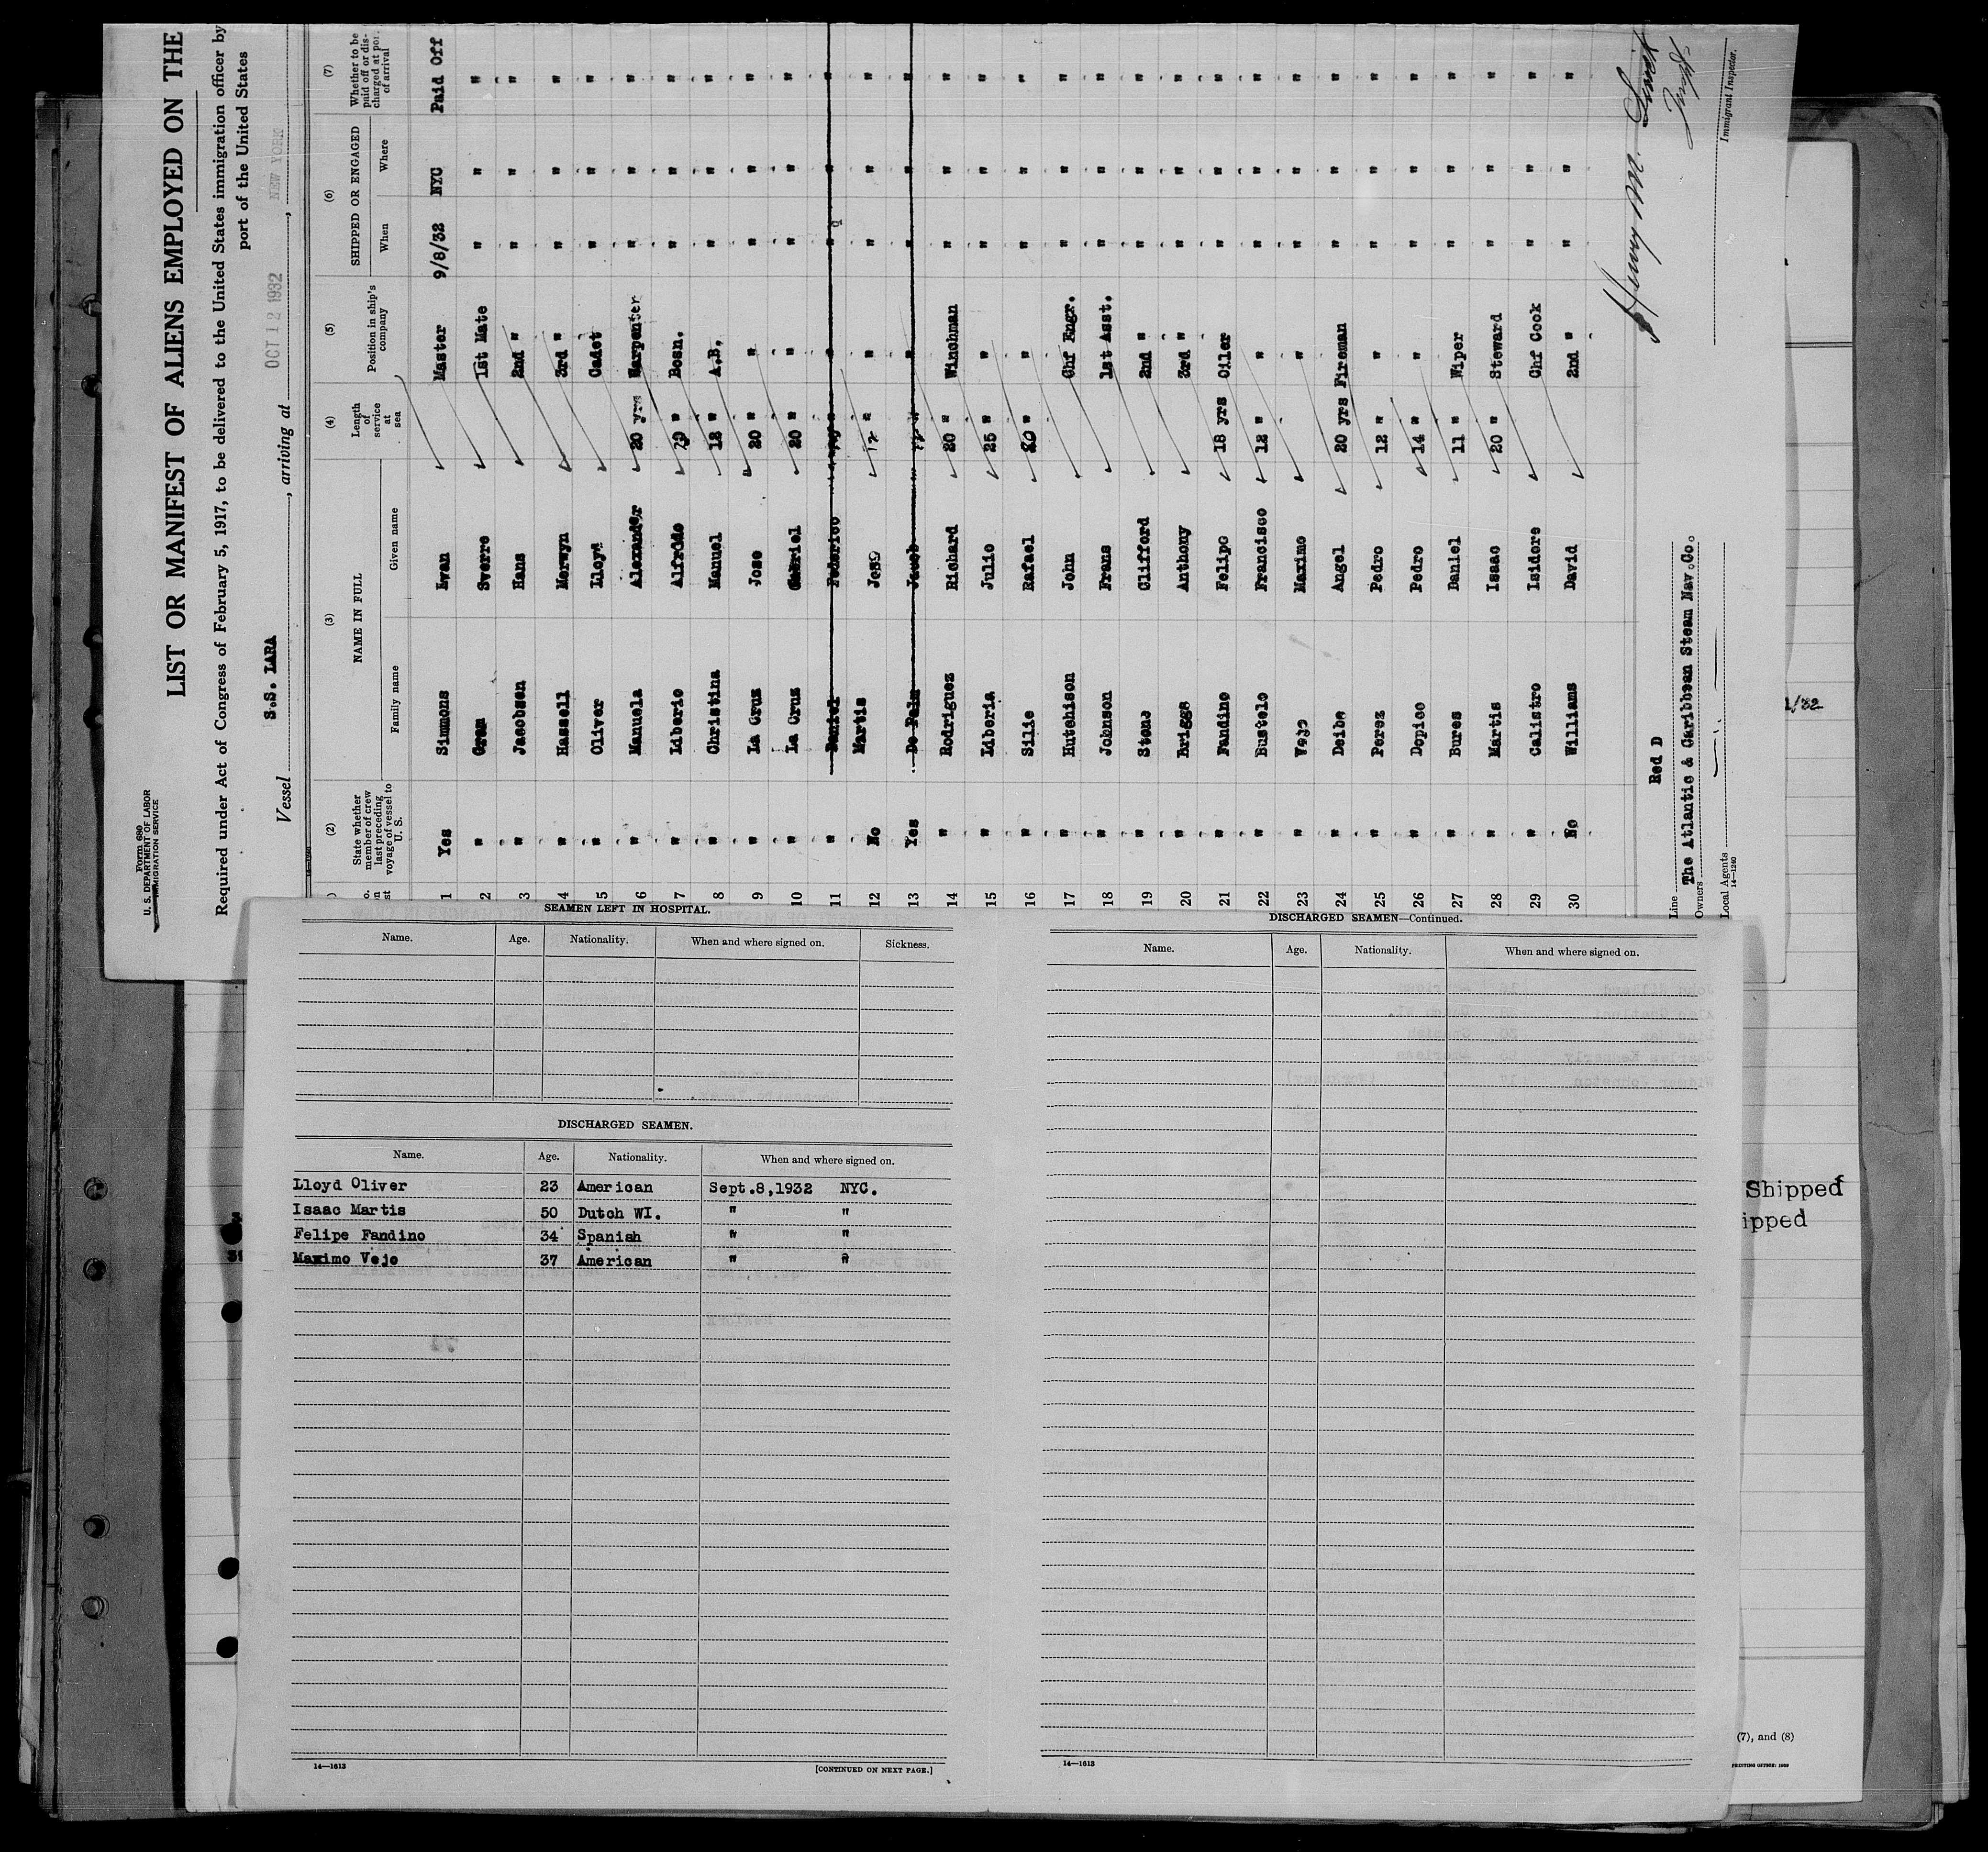 Form 680
U. S. DEPARTMENT OF LABOR
IMMIGRATION SERVICE
LIST OR MANIFEST OF ALIENS EMPLOYED ON THE
Required under Act of Congress of February 5, 1917, to be delivered to the United States immigration officer by
port of the United States
Vessel S.S. LARA, arriving at OCT 12 1932, NEW YORK
(2) (3) (4) (5) (6) (7)
State whether member of crew last preceding voyage of vessel to U. S.
NAME IN FULL
Family name Given name
Length of service at sea
Position in ship's company
SHIPPED OR ENGAGED
When Where
Whether to be paid off or discharged at port of arrival
1 Yes Simmons Evan Master 9/8/32 NYC Paid Off
2 " Gram Sverre 1st Mate " " "
3 " Jacobsen Hans 2nd " " " "
4 " Hassell Merwyn 3rd " " " "
5 " Oliver Lloyd Cadet " " "
6 " Manuela Alexander 20 yrs Carpenter " " "
7 " Liberio Alfredo 29 " Bosn. " " "
8 " Christina Manuel 12 " A.B. " " "
9 " La Cruz Jose 20 " " " " "
10 " La Cruz Gabriel 20 " " " " "
11 " Daniel Federico " " " " "
12 No Martis Jose 12 " " " " "
13 Yes De Palm Jacob " " " "
14 " Rodriguez Richard 20 " Winchman " " "
15 " Liberia Julio 25 " " " " "
16 " Silie Rafael 20 " " " " "
17 " Hutchison John Chf Engr. " " "
18 " Johnson Frans 1st Asst. " " "
19 " Stone Clifford 2nd " " " "
20 " Briggs Anthony 3rd " " " "
21 " Fandino Felipe 18 yrs Oiler " " "
22 " Bustelo Francisco 12 " " " " "
23 " Vejo Maximo " " " "
24 " Deibe Angel 20 yrs Fireman " " "
25 " Perez Pedro 12 " " " " "
26 " Dopico Pedro 14 " " " " "
27 " Bures Daniel 11 " Wiper " " "
28 " Martis Isaac 20 " Steward " " "
29 " Calistro Isidore Chf Cook " " "
30 No Williams David 2nd " " " "
Line Red D
Owners The Atlantic & Caribbean Steam Nav.Co.
Local Agents
14—1240
Henry M.
Immigrant Inspector.
1/32
SEAMEN LEFT IN HOSPITAL.
Name. Age. Nationality. When and where signed on. Sickness.
DISCHARGED SEAMEN.
Name. Age. Nationality. When and where signed on.
Lloyd Oliver 23 American Sept.8,1932 NYC.
Isaac Martis 50 Dutch WI. " "
Felipe Fandino 34 Spanish " "
Maximo Vejo 37 American " "
14—1613
[CONTINUED ON NEXT PAGE.]
DISCHARGED SEAMEN—Continued.
Name. Age. Nationality. When and where signed on.
14—1613
Shipped
ipped
(7), and (8)
PRINTING OFFICE: